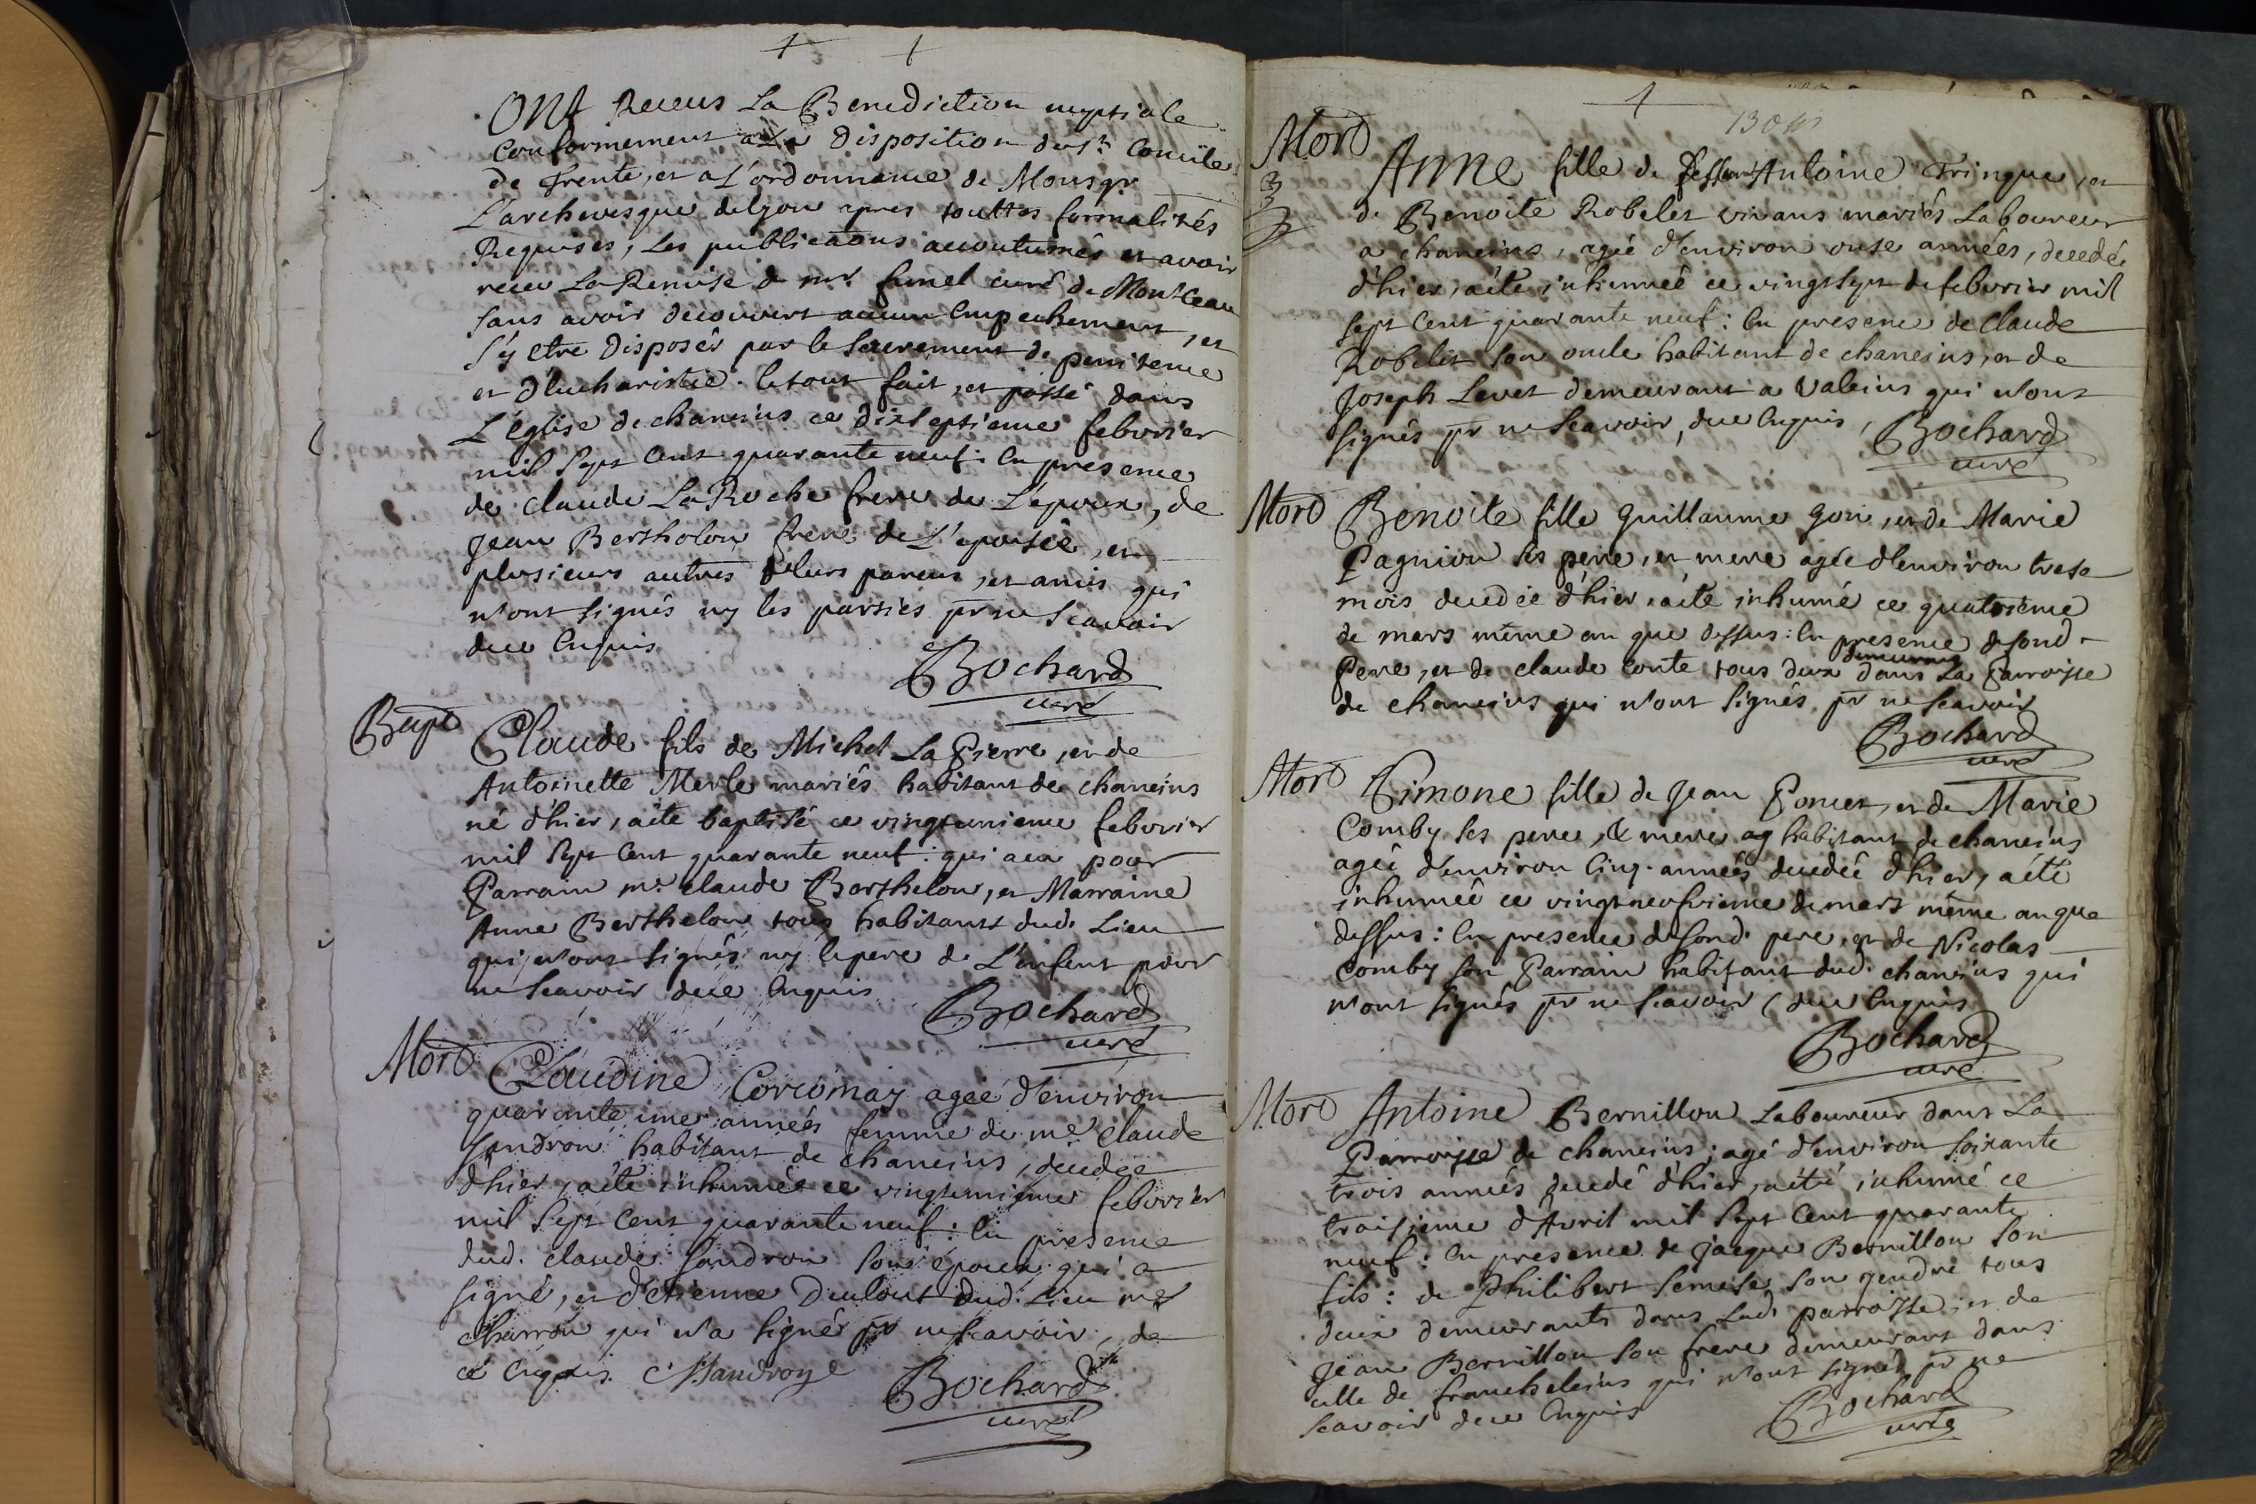 ont Receus la Benediction nuptiale
conformement a la disposition du st. concile
de Trente, et a l'ordonnance de Monsgr
L'archevesque de lyon apres touttes formalités
Requises, les publications accoutumés et avoir
receu la Remise de mr. famel curé de Montceau
sans avoir decouvert aucun Empechement, et
s'y etre disposés par le sacrement de penitence
et d'Eucharistie. le tout fait, et passé dans
L'église de chaneins ce dixseptieme febvrier
mil sept cent quarante neuf: En presence
de claude La Roche frere de L'epoux, de
jean Bertholon frere de L'epousée, et
plusieurs autres leurs parens, et amis qui
n'ont signés ny les parties pr ne scavoir
dece Enquis
Bochard
curé
Bapt
Claude fils de Michel La Pierre, et de
Antoinette Merle mariés habitant de chaneins
né d'hier, aété baptisé ce vingtunieme febvrier
mil sept cent quarante neuf: qui aeu pour
Parrain mr. claude Berthelon, et Marraine
Anne Berthelon tous habitants dud. Lieu
qui n'ont signés ny le pere de L'enfent pour
ne scavoir dece Enquis
Bochard
curé
Mort
Claudine Corcomay agée d'environ
quarante une années femme de me. claude
Sandron habitant de chaneins, decedée
d'hier, aété inhumée ce vingtunieme febvrier
mil sept cent quarante neuf: En presence
dud. claude Sandron son époux qui a
signé, et d'etienne Dulout dud. Lieu me
charron qui n'a signé pr ne scavoir, de
ce Enquis. C Sandron
Bochard
curé
130
Mort
Anne fille de Antoine Tringue, et
de Benoite Robelet vivans mariés Laboureur
a chaneins, agée d'environ onse années, decedée
d'hier, aété inhumée ce vingtsept de febvrier mil
sept cent quarante neuf: En presence de claude
Robelet son oncle habitant de chaneins, et de
joseph Levet demeurant a Valeins qui n'ont
signés pr ne scavoir, dece Enquis,
Bochard
curé
Mort
Benoite fille guillaume gon, et de Marie
Pagnion ses pere, et mere agée d'environ trese
mois decedée d'hier, aété inhumé ce quatorieme
de mars même an que dessus: En presence de sond.
Pere, et de claude Conte tous deux demeurans dans La Parroisse
de chaneins qui n'ont signés, pr ne scavoir
Bochard
curé
Mort
Simone fille de jean Poncet, et de Marie
Comby ses pere, & mere ag habitant de chaneins
agée d'environ Cinq années decedée d'hier, aété
inhumée ce vingtneufvieme de mars même an que
dessus: En presence de sond. pere, et de Nicolas
Comby son Parrain habitant dud. chaneins qui
n'ont signés pr ne scavoir, dece Enquis
Bochard
curé
Mort
Antoine Bernillon Laboureur dans La
Parroisse de chaneins; agé d'environ soixante
trois années decedé d'hier, aété inhumé ce
troisieme d'Avril mil sept cent quarante
neuf: En presence de jacque Bernillon son
fils: de Philibert Semese son gendre tous
deux demeurants dans lad. parroisse, et de
jean Bernillon son frere demeurant dans
celle de francheleins qui n'ont signés pr ne
scavoir dece Enquis
Bochard
curé